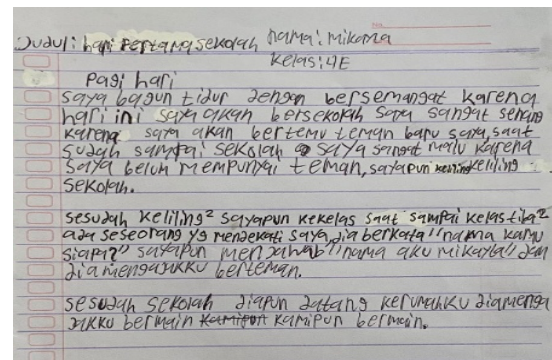 Judul: hari pertama sekolah nama: mikama
kelas: 4E
Pagi hari
saya bagun tidur dengan bersemangat karena
hari ini saya akan bersekolah saya sangat senang
karena saya akan bertemu teman baru saya, saat
sudah sampai sekolah saya sangat malu karena
saya beluh mempunyai teman, sayapun keliling keliling
sekolah.
sesudah keliling² sayapun kekelas saat sampai kelas tiba²
ada seseorang yg mendekati saya, dia berkata "nama kamu
siapa?" sayapun menjawab "nama aku mikayla" dan
dia mengajakku berteman.
sesudah sekolah diapun datang kerumahku diamenga
jakku bermain kamipun kamipun bermain.